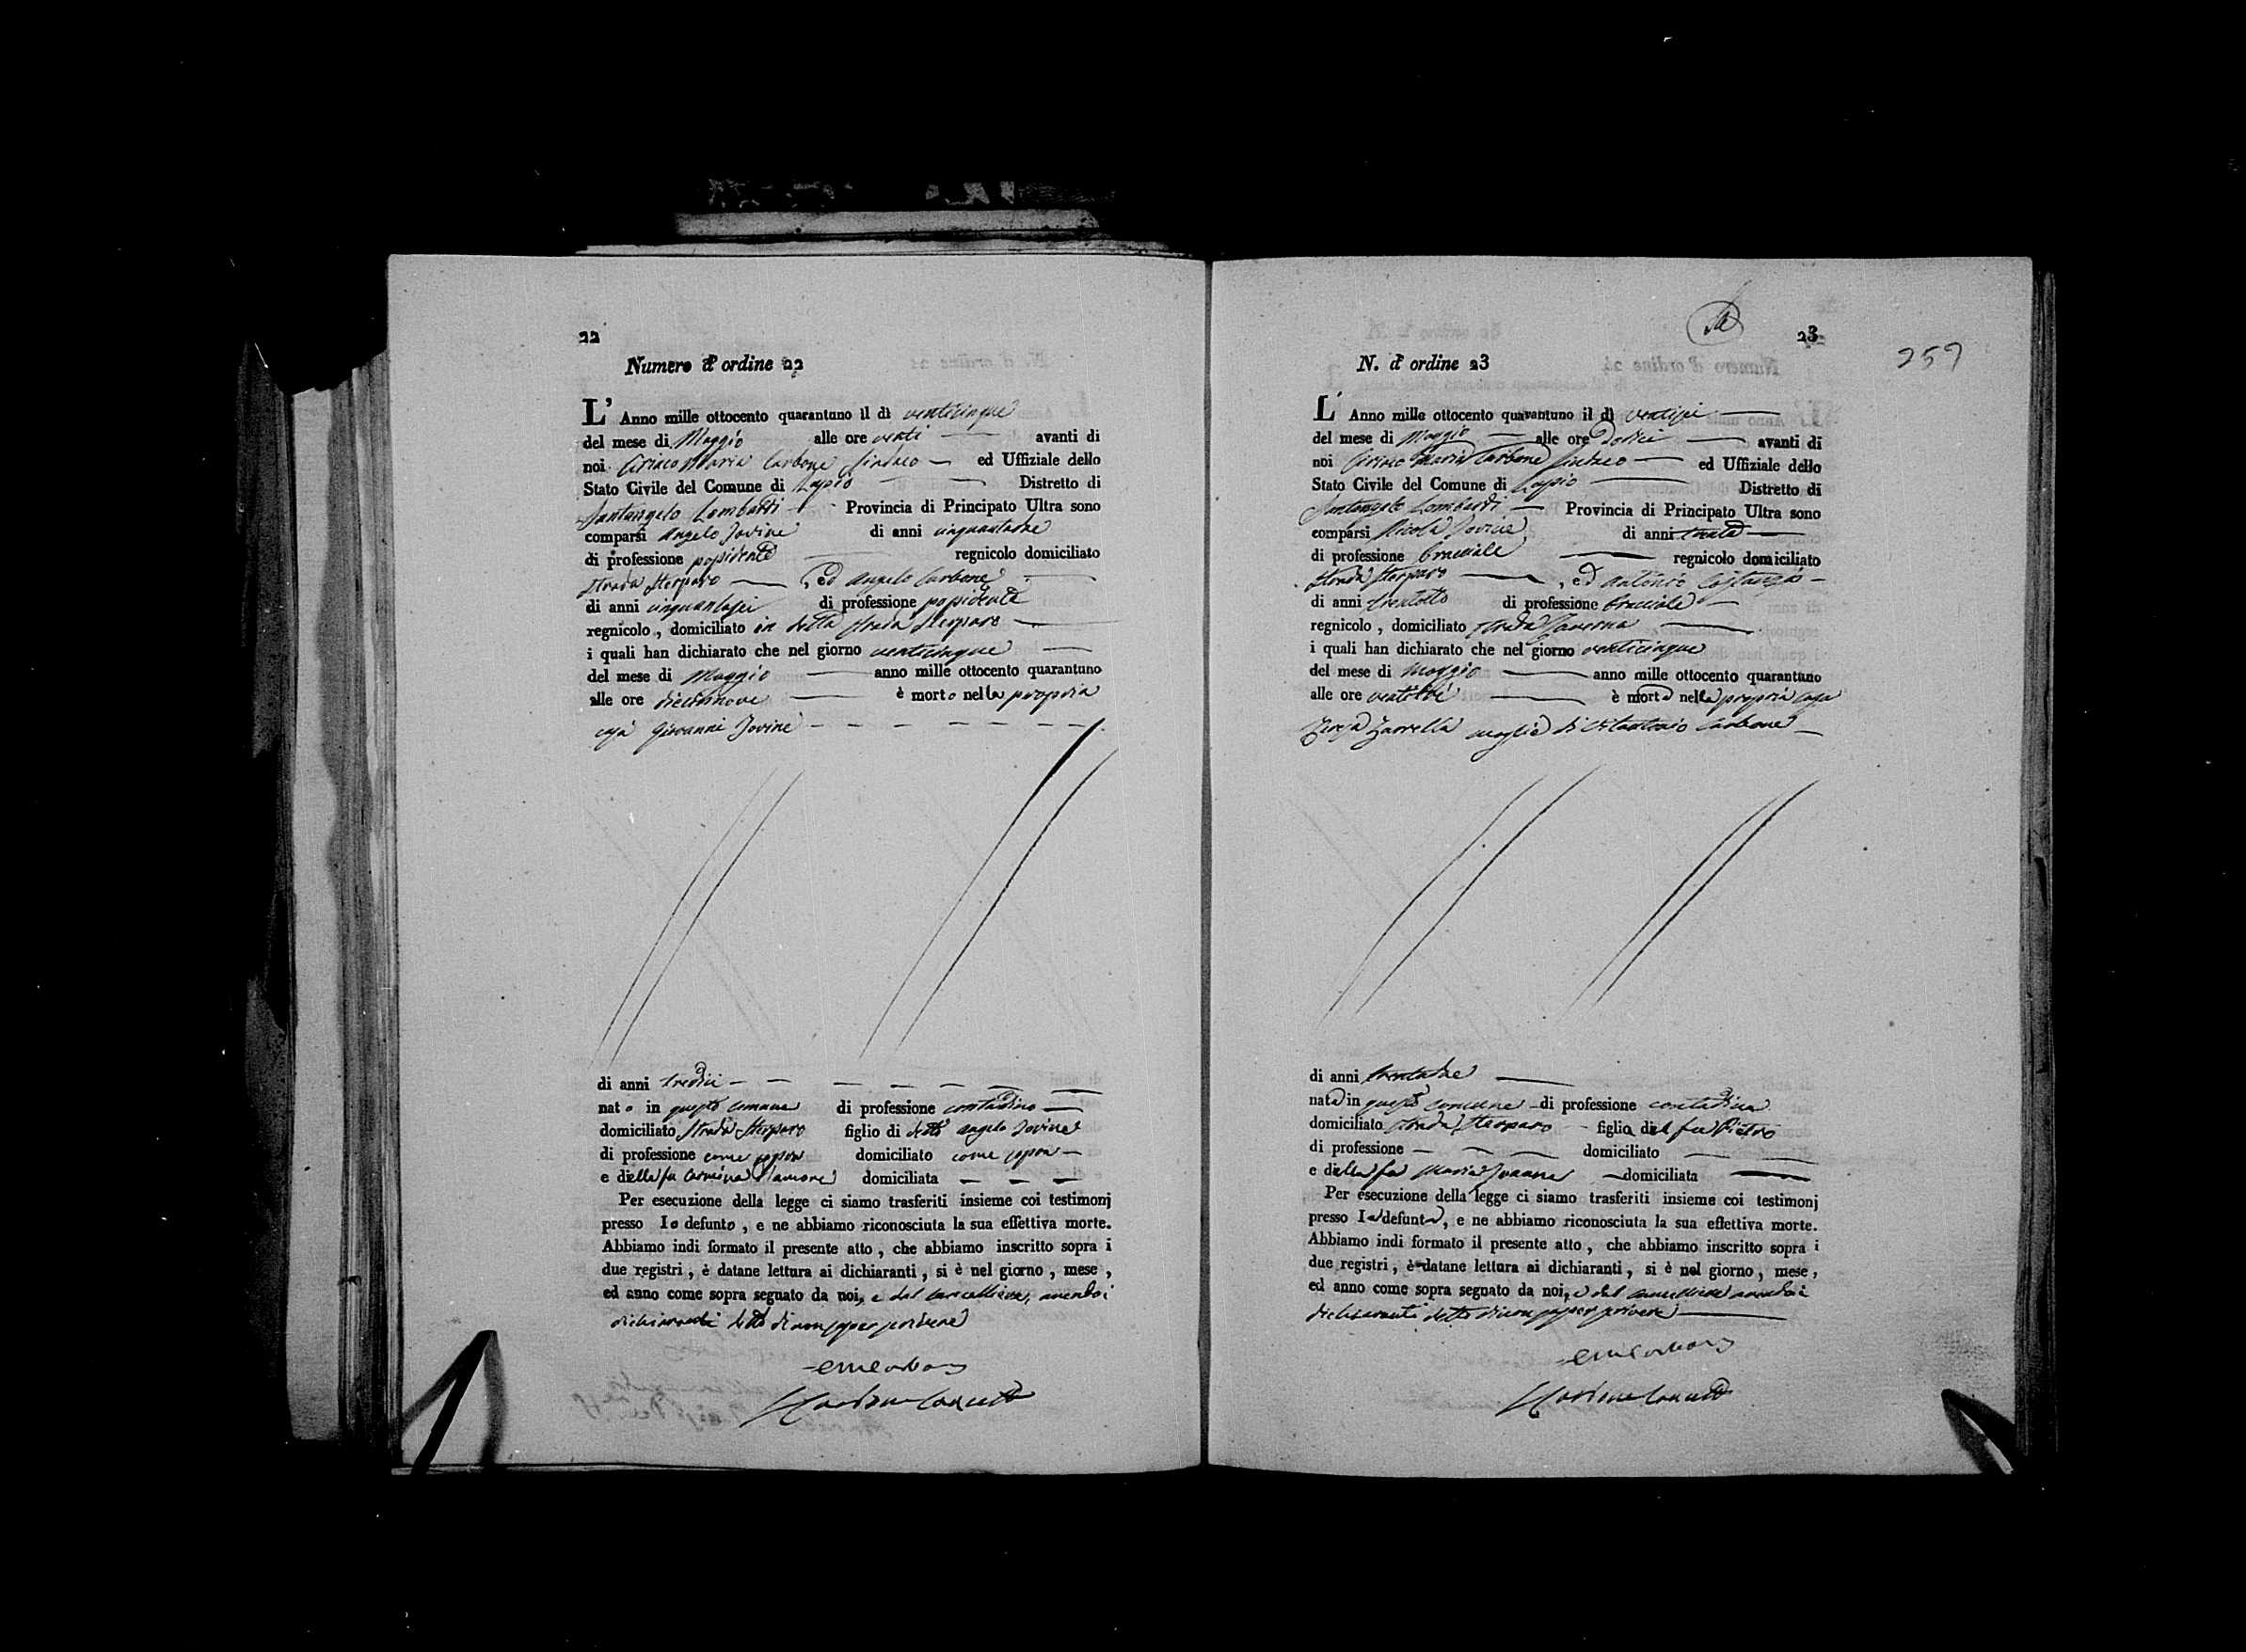 22
Numero d' ordine 22
L' Anno mille ottocento quarantuno il dì venticinque
del mese di Maggio alle ore venti avanti di
noi Ciriaco Maria Carbone Sindaco ed Uffiziale dello
Stato Civile del Comune di Lapio Distretto di
Santangelo Lombardi Provincia di Principato Ultra sono
comparsi Angelo Jovine di anni cinquantatre
di professione possidente regnicolo domiciliato
strada Sterparo , ed Angelo Carbone
di anni cinquantasei di professione possidente
regnicolo , domiciliato in detta strada Sterparo
i quali han dichiarato che nel giorno venticinque
del mese di Maggio anno mille ottocento quarantuno
alle ore diecinnove è morto nella propria
casa Giovanni Jovine
di anni tredici
nato in questo comune di professione contadino
domiciliato strada Sterparo figlio di detto Angelo Jovine
di professione come sopra domiciliato come sopra
e della fu Carmina d'amore domiciliata
Per esecuzione della legge ci siamo trasferiti insieme coi testimonj
presso lo defunto , e ne abbiamo riconosciuta la sua effettiva morte.
Abbiamo indi formato il presente atto , che abbiamo inscritto sopra i
due registri , è datane lettura ai dichiaranti , si è nel giorno , mese ,
ed anno come sopra segnato da noi, e dal Cancelliere, avendo i
dichiaranti detto di non saper scrivere
23
259
N. d' ordine 23
L' Anno mille ottocento quarantuno il dì ventisei
del mese di Maggio alle ore dodici avanti di
noi Ciriaco Maria Carbone Sindaco ed Uffiziale dello
Stato Civile del Comune di Lapio Distretto di
Santangelo Lombardi Provincia di Principato Ultra sono
comparsi Nicola Jovine di anni trenta
di professione bracciale regnicolo domiciliato
strada Sterparo , ed Antonio Costanzo
di anni trentotto di professione bracciale
regnicolo , domiciliato strada Taverna
i quali han dichiarato che nel giorno venticinque
del mese di Maggio anno mille ottocento quarantuno
alle ore ventitrè è morta nella propria casa
Teresa Zarrella moglie di Vitantonio Carbone
di anni trentatre
nata in questo comune di professione contadina
domiciliato strada Sterparo figlia del fu Pietro
di professione domiciliato
e della fu Maria domiciliata
Per esecuzione della legge ci siamo trasferiti insieme coi testimonj
presso la defunta, e ne abbiamo riconosciuta la sua effettiva morte.
Abbiamo indi formato il presente atto , che abbiamo inscritto sopra i
due registri , è datane lettura ai dichiaranti , si è nel giorno , mese ,
ed anno come sopra segnato da noi, e dal Cancelliere avendo i
dichiaranti detto di non saper scrivere